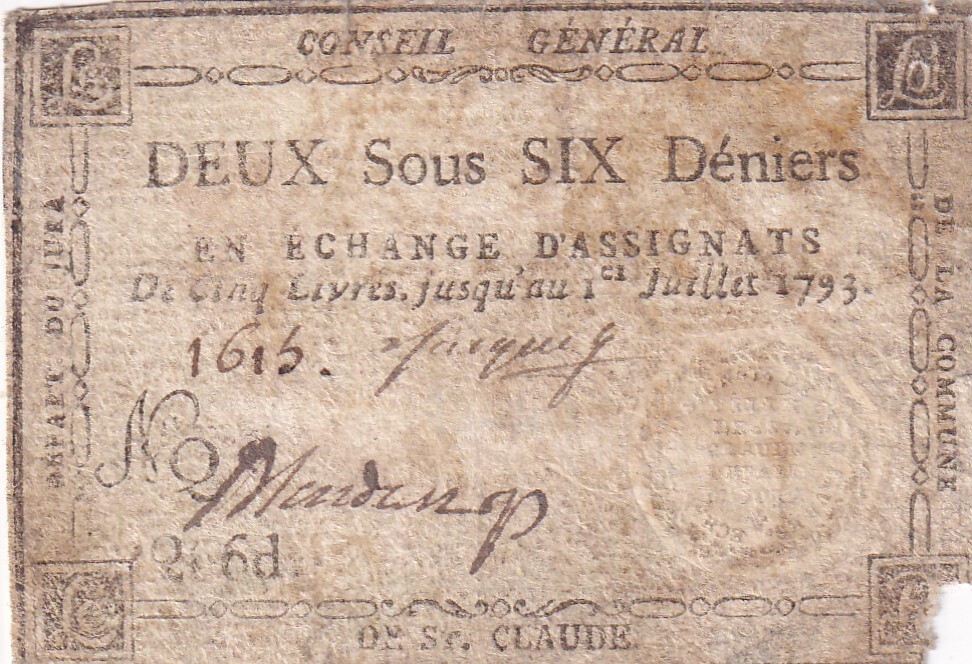 CONSEIL GÉNÉRAL
DEUX Sous SIX Déniers
EN ÉCHANGE D'ASSIGNATS
De Cinq Livres, jusqu'au 1er Juillet 1793.
1615.
No
2s 6d
DE St. CLAUDE
DÉPART. DU JURA
DE LA COMMUNE